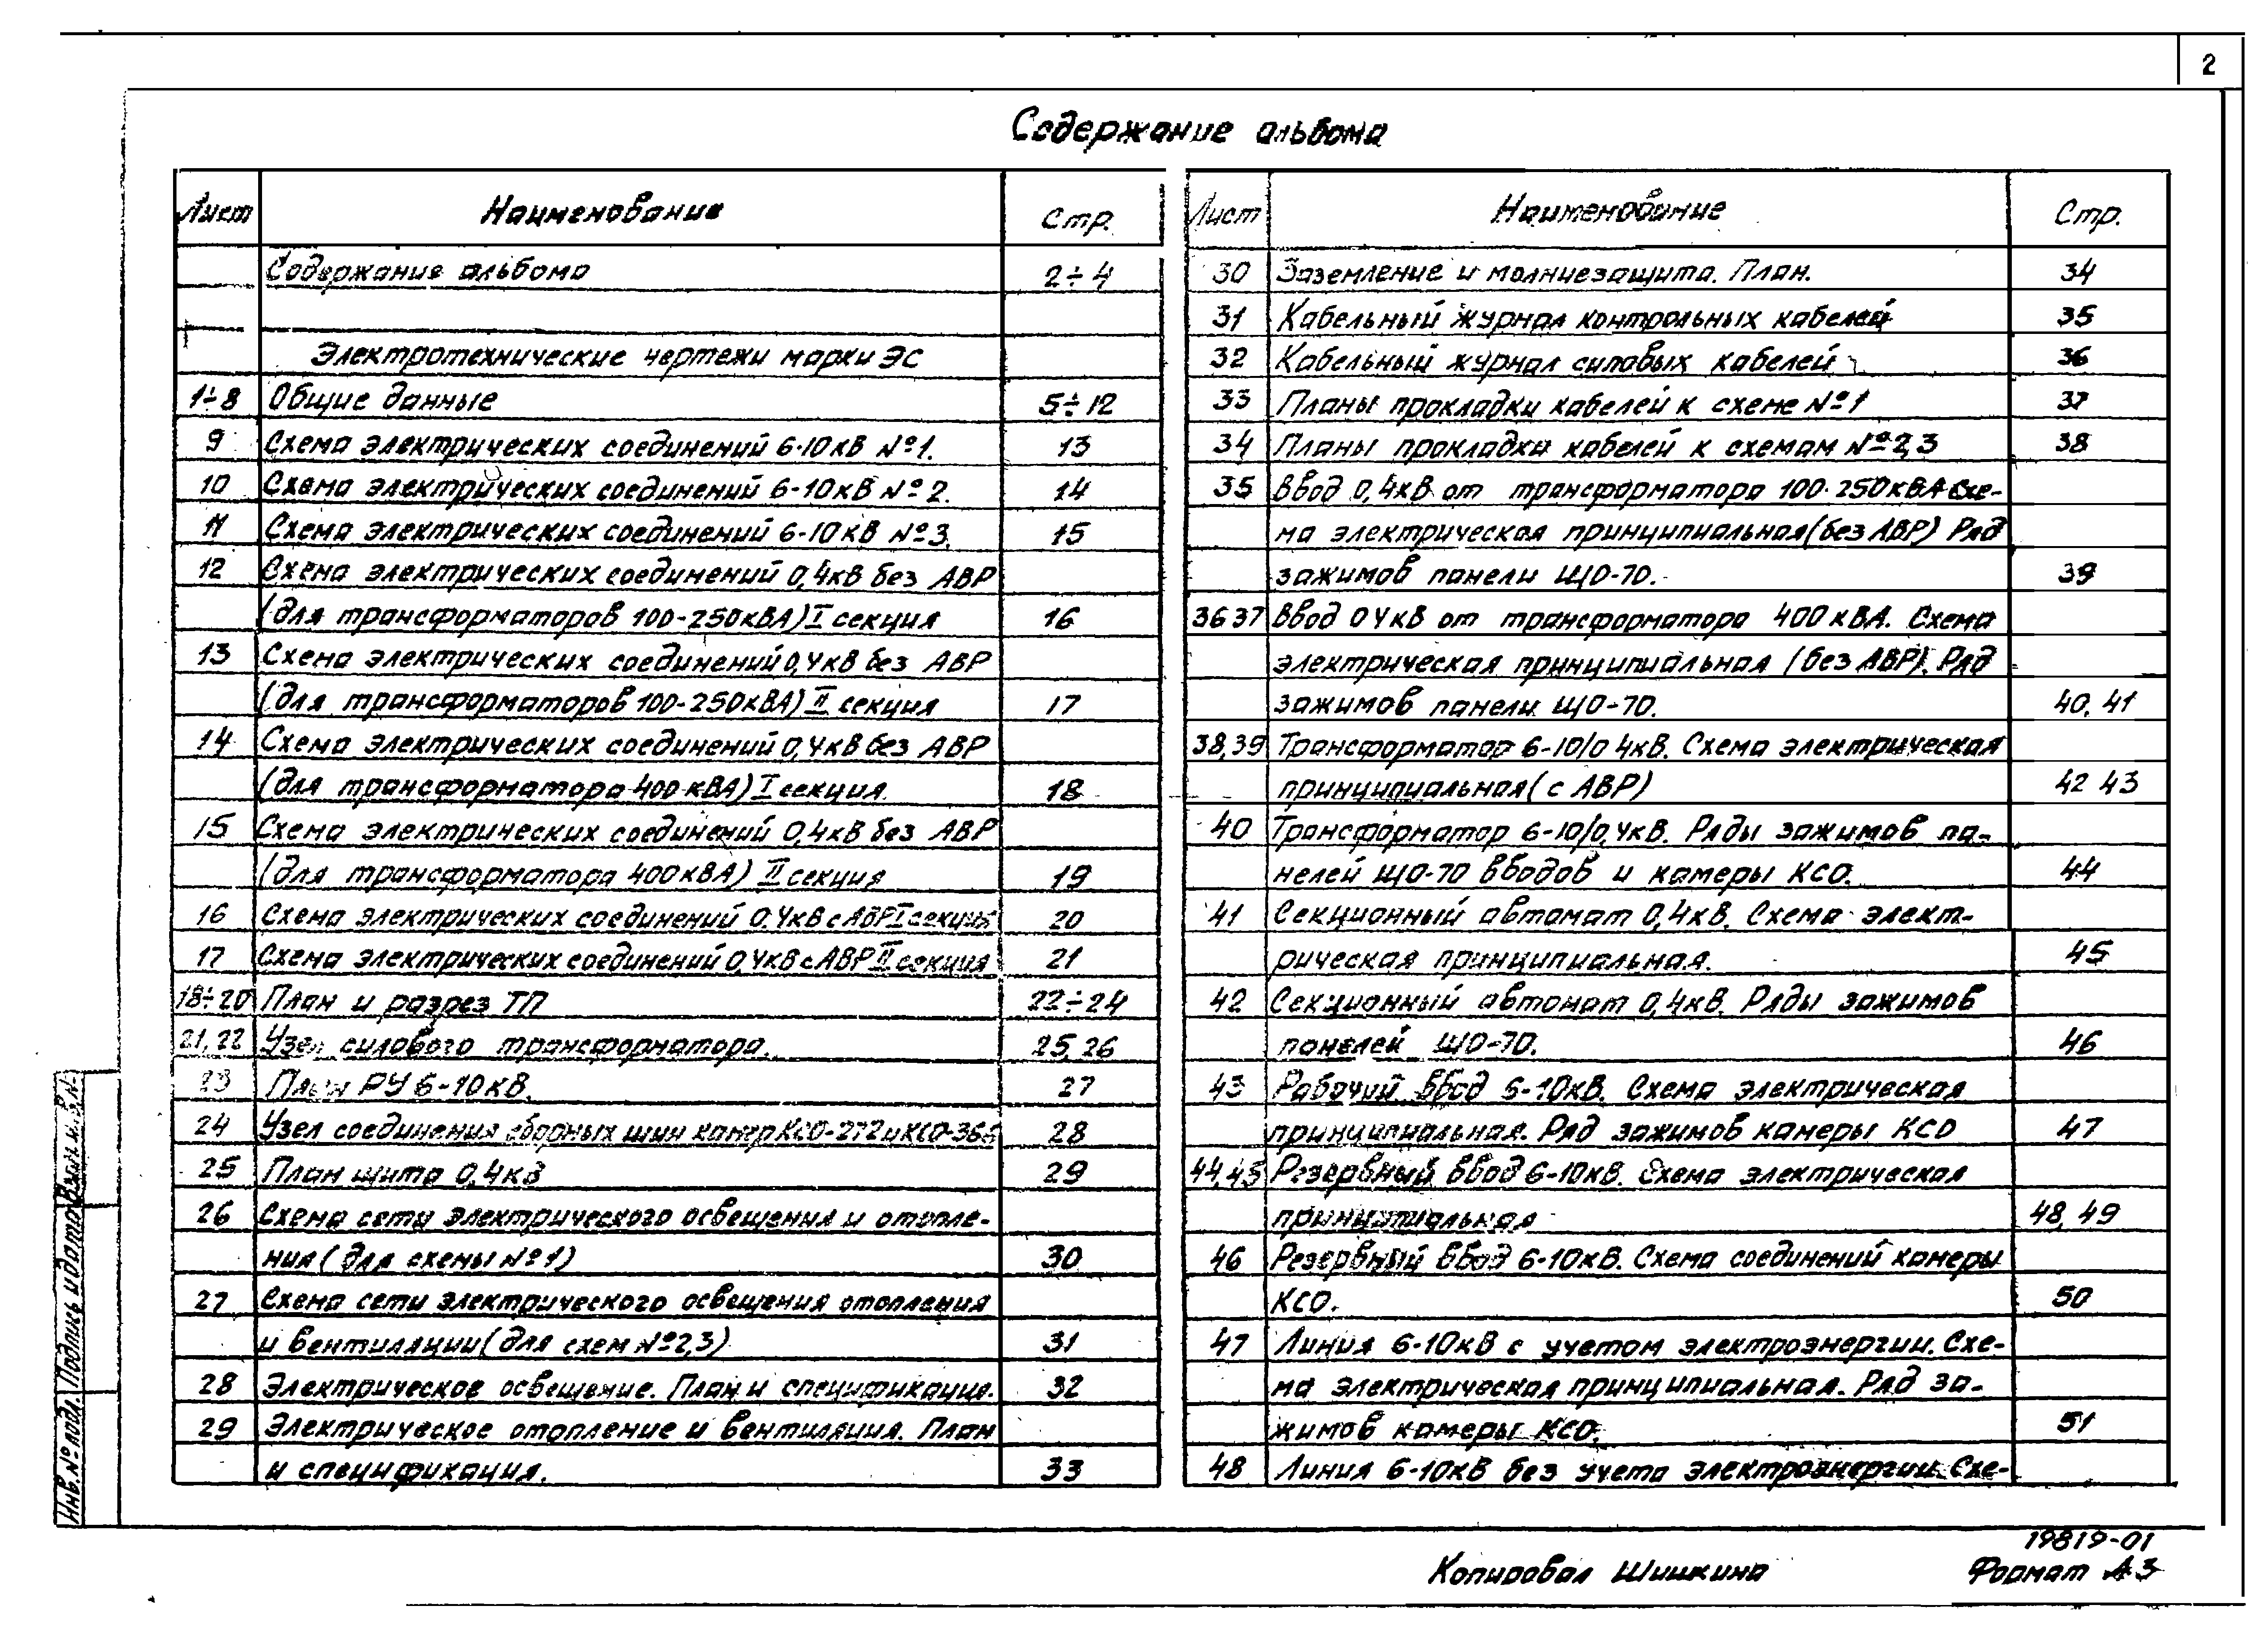 2
Содержание альбома
Лист Наименование Стр.
Содержание альбома 2÷4
Электротехнические чертежи марки ЭС
1÷8 Общие данные 5÷12
9 Схема электрических соединений 6-10кВ №1. 13
10 Схема электрических соединений 6-10кВ №2. 14
11 Схема электрических соединений 6-10кВ №3. 15
12 Схема электрических соединений 0,4кВ без АВР
(для трансформаторов 100-250кВА) I секция 16
13 Схема электрических соединений 0,4кВ без АВР
(для трансформаторов 100-250кВА) II секция 17
14 Схема электрических соединений 0,4кВ без АВР
(для трансформатора 400кВА) I секция. 18
15 Схема электрических соединений 0,4кВ без АВР
(для трансформатора 400кВА) II секция 19
16 Схема электрических соединений 0.4кВ с АВР I секция 20
17 Схема электрических соединений 0,4кВ с АВР II секция 21
18÷20 План и разрез ТП 22÷24
21,22 Узел силового трансформатора. 25,26
23 План РУ 6-10кВ. 27
24 Узел соединения сборных шин камер КСО-272 и КСО-366 28
25 План щита 0,4кВ 29
26 Схема сети электрического освещения и отопле-
ния (для схемы №1) 30
27 Схема сети электрического освещения отопления
и вентиляции (для схем №2,3) 31
28 Электрическое освещение. План и спецификация. 32
29 Электрическое отопление и вентиляция. План
и спецификация. 33
Лист Наименование Стр.
30 Заземление и молниезащита. План. 34
31 Кабельный журнал контрольных кабелей 35
32 Кабельный журнал силовых кабелей 36
33 Планы прокладки кабелей к схеме №1 37
34 Планы прокладки кабелей к схемам №2,3 38
35 Ввод 0,4кВ от трансформатора 100-250кВА Схе-
ма электрическая принципиальная (без АВР) Ряд
зажимов панели ЩО-70. 39
36 37 Ввод 0 4кВ от трансформатора 400кВА. Схема
электрическая принципиальная (без АВР). Ряд
зажимов панели ЩО-70. 40,41
38,39 Трансформатор 6-10/0 4кВ. Схема электрическая
принципиальная (с АВР) 42 43
40 Трансформатор 6-10/0,4кВ. Ряды зажимов па-
нелей ЩО-70 вводов и камеры КСО. 44
41 Секционный автомат 0,4кВ. Схема элект-
рическая принципиальная. 45
42 Секционный автомат 0,4кВ. Ряды зажимов
панелей ЩО-70. 46
43 Рабочий ввод 6-10кВ. Схема электрическая
принципиальная. Ряд зажимов камеры КСО 47
44,45 Резервный ввод 6-10кВ. Схема электрическая
принципиальная 48,49
46 Резервный ввод 6-10кВ. Схема соединений камеры
КСО. 50
47 Линия 6-10кВ с учетом электроэнергии. Схе-
ма электрическая принципиальная. Ряд за-
жимов камеры КСО. 51
48 Линия 6-10кВ без учета электроэнергии. Схе-
Инв.№ подл. Подпись и дата Взам.и
19819-01
Копировал Шишкина Формат А3